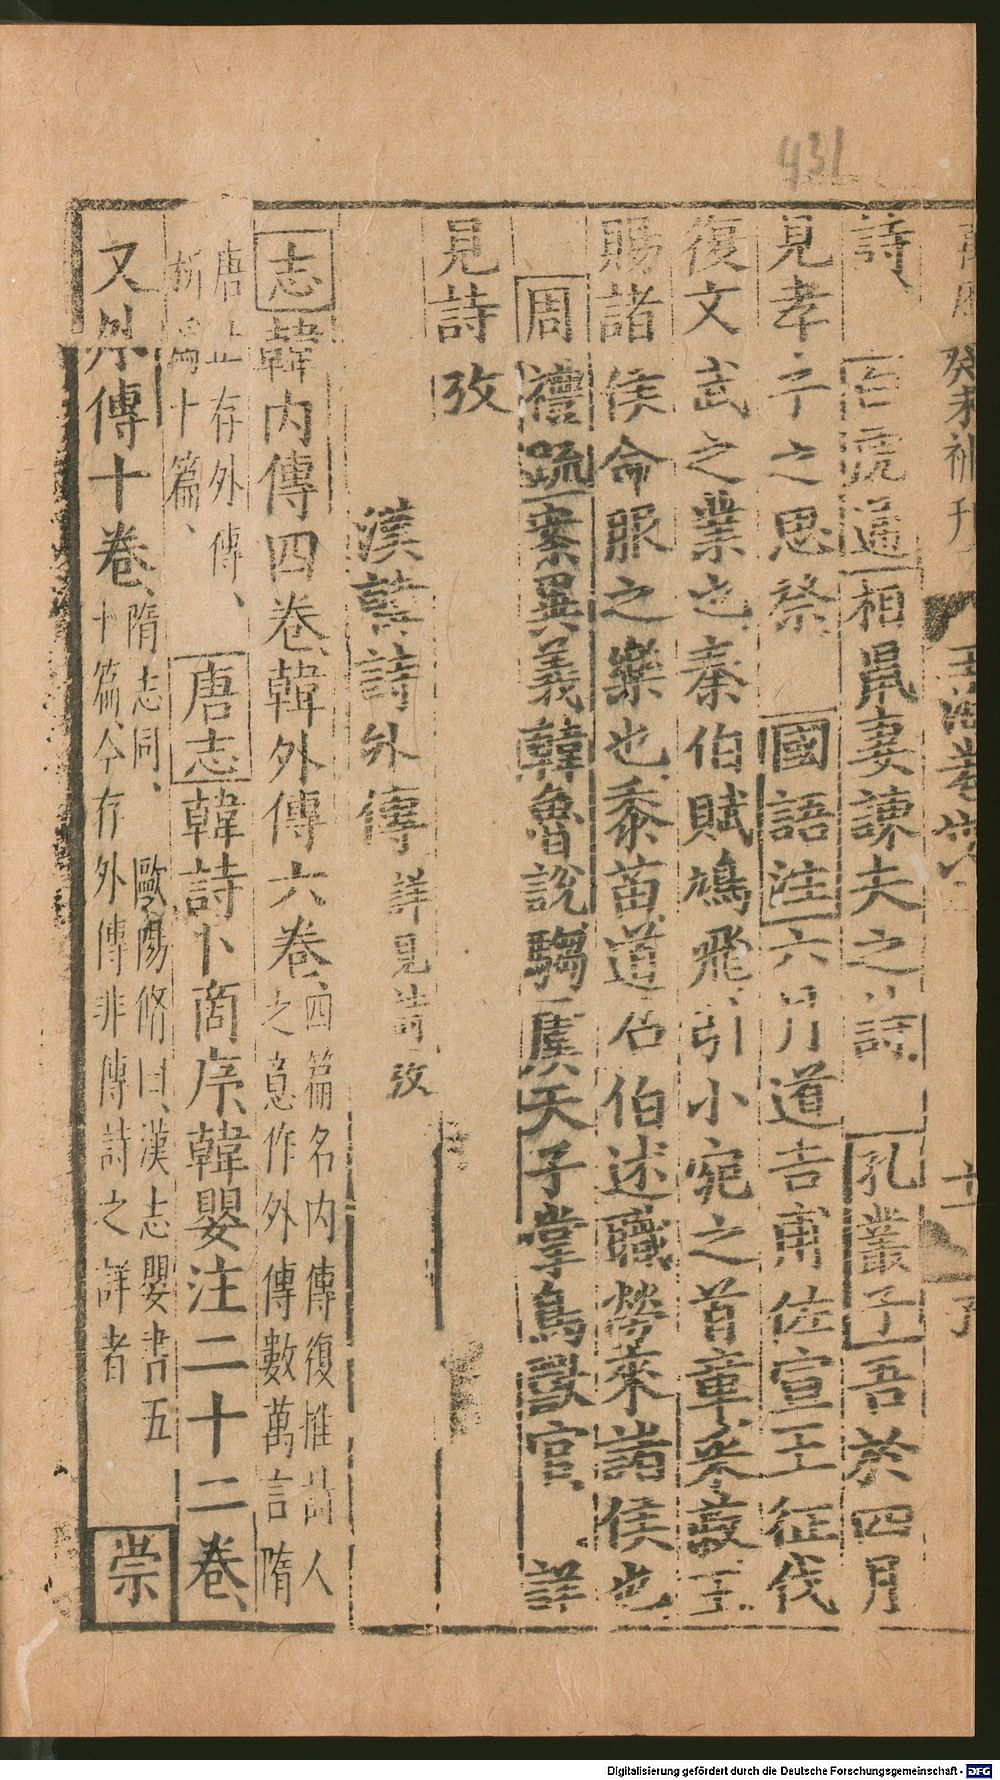 431
癸未補刊 玉海卷
詩 白虎通相鼠妻諫夫之詩 孔叢子吾於四月
見孝子之思祭 國語注六月道吉甫佐宣王征伐
復文武之業也秦伯賦鳩飛引小宛之首章采菽王
賜諸侯命服之樂也黍苗道召伯述職勞來諸侯也
周禮疏案異義韓魯說騶虞天子掌鳥獸官 詳
見詩攷
漢韓詩外傳 詳見詩攷
志韓內傳四卷韓外傳六卷 四篇名內傳復推詩人
之意作外傳數萬言隋
唐止存外傳
析爲十篇 唐志韓詩卜商序韓嬰注二十二卷
又外傳十卷 隋志同 歐陽脩曰漢志嬰書五
十篇今存外傳非傳詩之詳者
崇
Digitalisierung gefördert durch die Deutsche Forschungsgemeinschaft - DFG